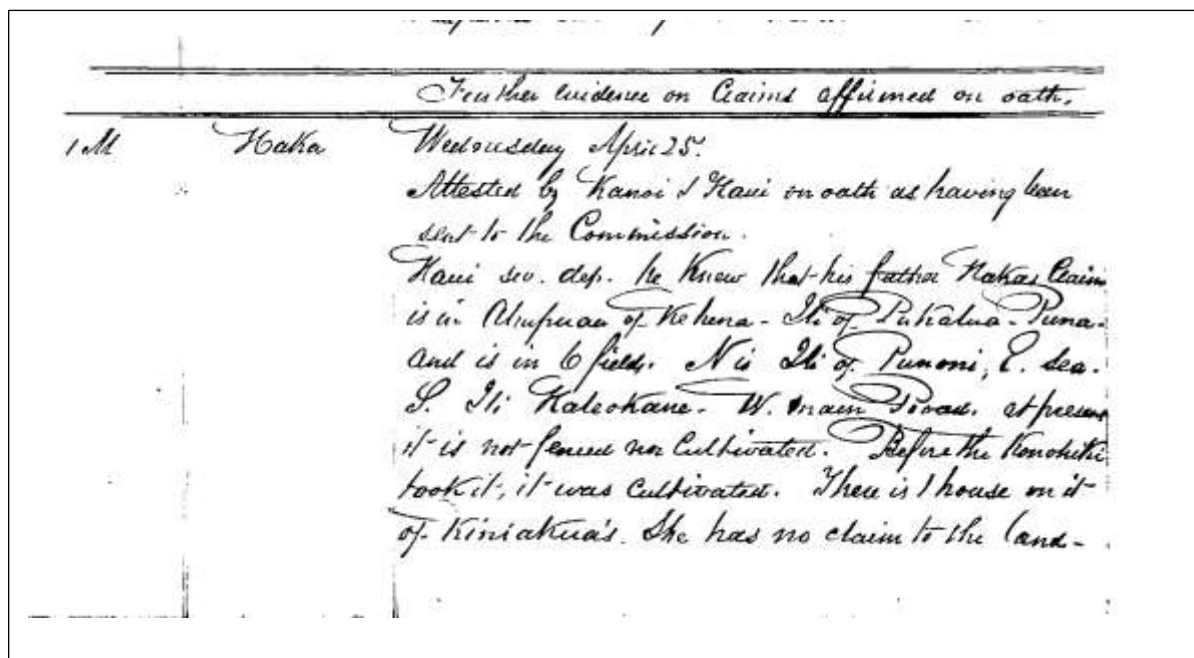 Further evidence on Claims affirmed on oath.
1 M Haka Wednesday April 25.
Attested by Kanoi & Haui on oath as having been
sent to the Commission.
Haui sw. dep. he knew that his father Hakas Claim
is in Ahupuaa of Kehena - Ili of Pukalua - Puna -
and is in 6 fields. N is Ili of Punoni, E. Sea.
S. Ili Haleokane - W. main Road. at present
it is not fenced nor Cultivated. Before the Konohiki
took it, it was Cultivated. There is 1 house on it
of Kiniakua's. She has no claim to the land -